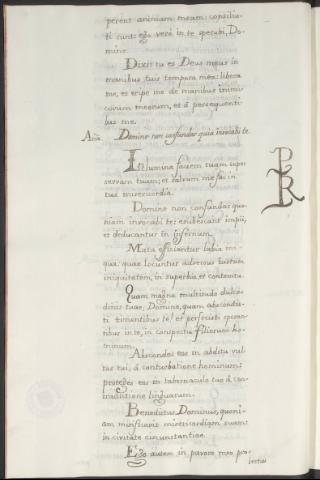 perent animam meam: consilia-
ti sunt: ego vero in te speravi, Do-
mine.
Dixi: tu es Deus meus in
manibus tuis tempora mea: libera
me, et eripe me de manibus inimi
corum meorum, et à persequenti-
bus me.
Ana. Domine non confundar quia invocabi te.
Inlumina faciem tuam super
servum tuum; et salvum me fac in
tua misericordia.
Domine non confundar quo-
niam invocabi te: erubescant impii,
et deducantur in Infernum.
Muta efficiantur labia ini-
qua: quae locuntur adversus iustum
iniquitatem, in superbia et contemtu.
Quam magna multitudo dulce-
dinis tuae, Domine, quam abscondis-
ti timentibus te! et perfecisti speran-
tibus in te, in conspectu filiorum ho-
minum.
Abscondes eos in abditu vul-
tus tui, à conturbatione hominum:
proteges eos in tabernaculo tuo à con-
tradictione linguarum.
Benedictus Dominus, quoni-
am mirificavit misericordiam suam
in civitate circunstantiae.
Ego autem in pavore meo pro-
iectus
PR